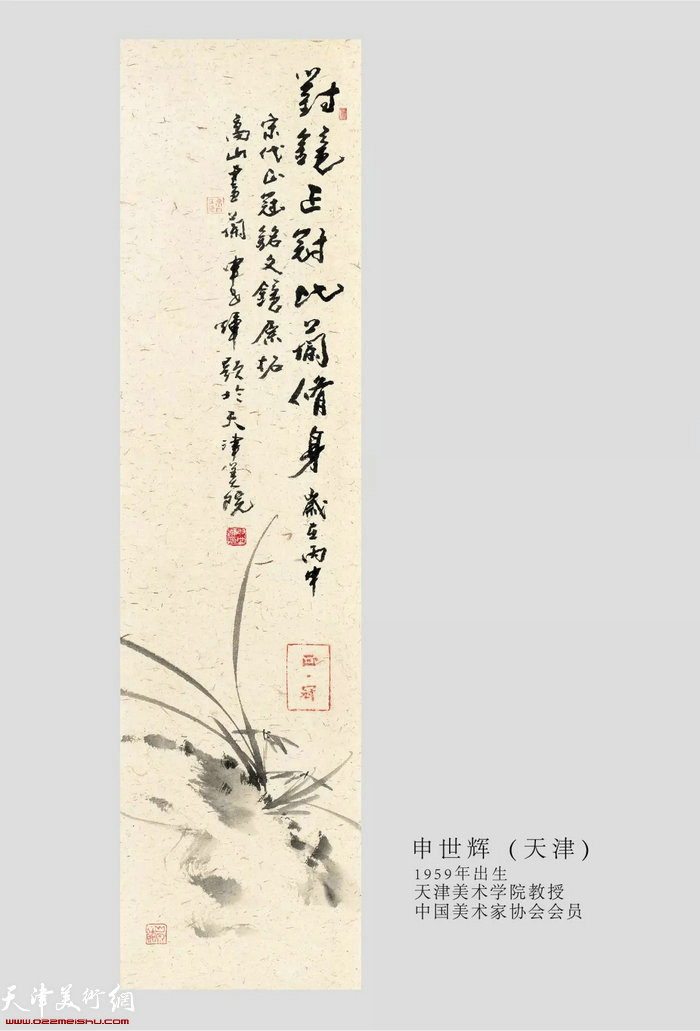 對鏡正冠比蘭脩身 歲在丙申
宋代正冠銘文鏡原拓
高山畫蘭 申世輝題於天津美院
正·冠
申世辉（天津）
1959年出生
天津美术学院教授
中国美术家协会会员
天津美術網
www.022meishu.com